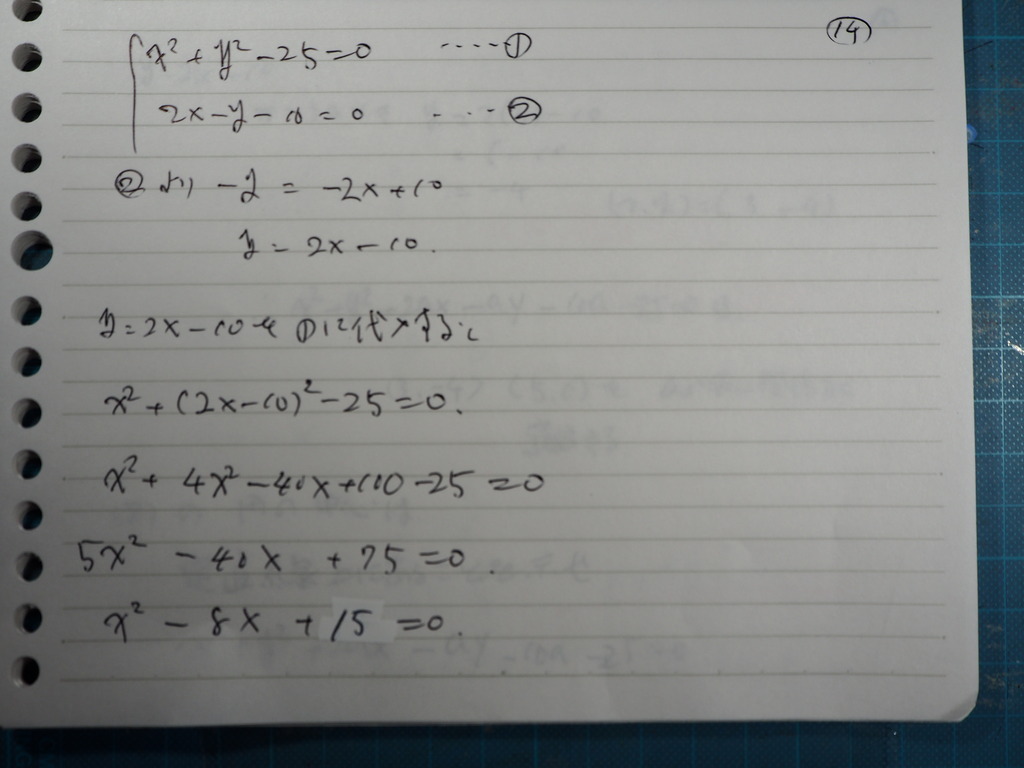 ⑭
x² + y² - 25 = 0 ····· ①
2x - y - 10 = 0 ····· ②
② より -y = -2x + 10
y = 2x - 10.
y = 2x - 10 を ①に代入すると
x² + (2x - 10)² - 25 = 0.
x² + 4x² - 40x + 100 - 25 = 0
5x² - 40x + 75 = 0.
x² - 8x + 15 = 0.